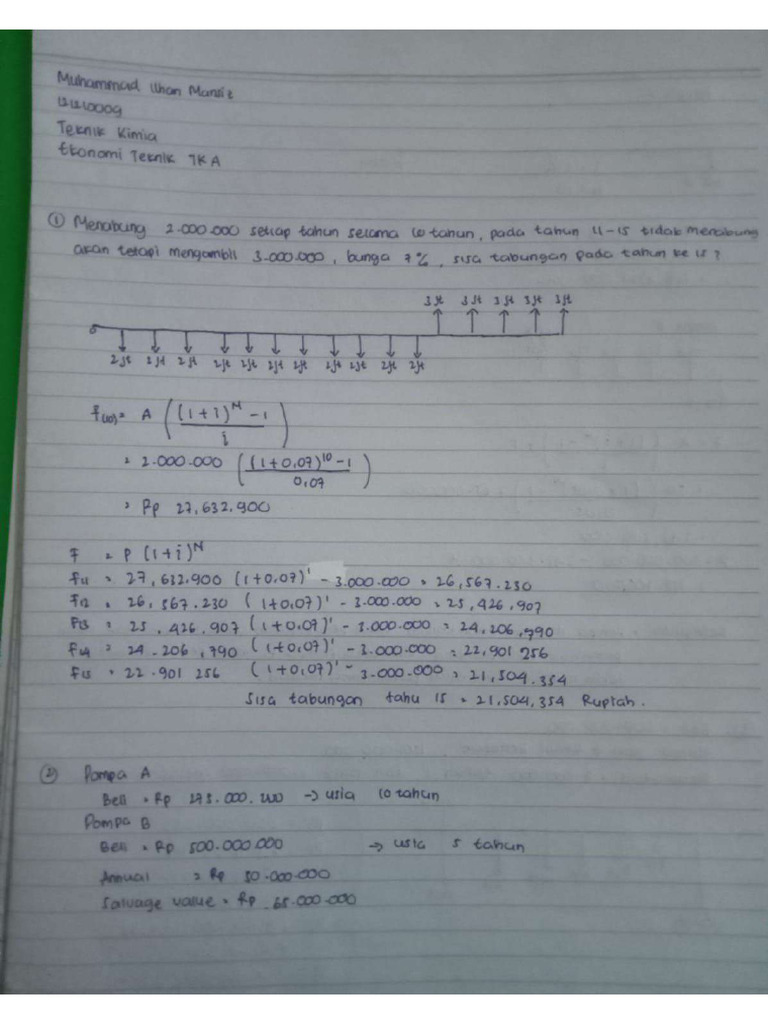 Muhammad Ilhan Mansiz
12121000g
Teknik Kimia
Ekonomi Teknik TKA
① Menabung 2.000.000 setiap tahun selama 10 tahun, pada tahun 11-15 tidak menabung
akan tetapi mengambil 3.000.000, bunga 7%, sisa tabungan pada tahun ke 15?
3 jt 3 jt 3 jt 3 jt 3 jt
0
2 jt 2 jt 2 jt 2 jt 2 jt 2 jt 2 jt 2 jt 2 jt 2 jt 2 jt
F(10) = A ((1+i)^N - 1 / i)
= 2.000.000 ((1+0,07)^10 - 1 / 0,07)
= Rp 27,632.900
F = P (1+i)^N
F11 = 27,632.900 (1+0,07)^1 - 3.000.000 = 26,567.230
F12 = 26,567.230 (1+0,07)^1 - 3.000.000 = 25,426,907
F13 = 25.426,907 (1+0,07)^1 - 3.000.000 = 24,206,790
F14 = 24.206,790 (1+0,07)^1 - 3.000.000 = 22,901 256
F15 = 22.901 256 (1+0,07)^1 - 3.000.000 = 21,504.354
Sisa tabungan tahu 15 = 21,504,354 Rupiah.
② Pompa A
Beli = Rp 275.000.200 -> usia 10 tahun
Pompa B
Beli = Rp 500.000.000 -> usia 5 tahun
Annual = Rp 50.000.000
Salvage value = Rp 65.000.000